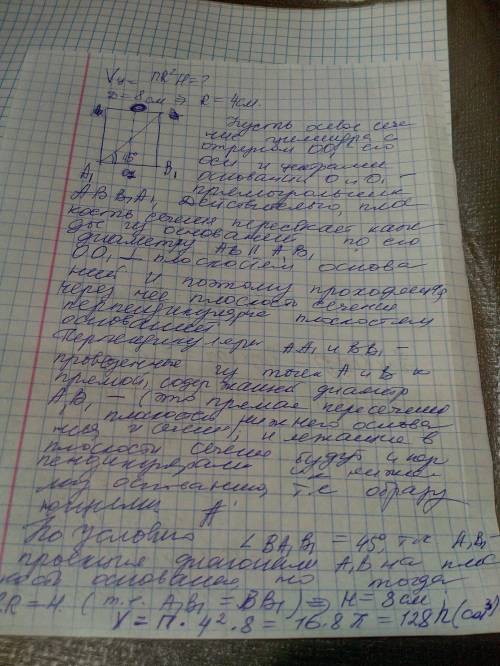 Vц = ПR²H = ?
D = 8 см ⇒ R = 4 см.
Пусть осевое сече
ние цилиндра с
отрезком OO₁ его
оси и центрами
оснований O и O₁ -
A₁ 45° O₁ B₁ прямоугольник
ABB₁A₁. Действительно, плос
кость сечения пересекает каж
дое из оснований по его
диаметру AB и A₁B₁
OO₁ – плоскостям основа
ний и поэтому проходящая
через нее плоскость сечения
перпендикулярна плоскостям
оснований
Перпендикуляры AA₁ и BB₁ –
проведенные из точек A и B к
прямой, содержащей диаметр
A₁B₁ – (это прямая пересечения
плоскости нижнего основа
ния и сечения) и лежащие в
плоскости сечения будут и пер
пендикулярами к нижне
му основанию, т.к.
По условию ∠BA₁B₁ = 45°, т.к. A₁B₁ -
проекция диагонали A₁B на плос
кость основания, но тогда
2R = H. (т.к. A₁B₁ = BB₁) ⇒ H = 8 см
V = П · 4² · 8 = 16 · 8 П = 128 П (см³)